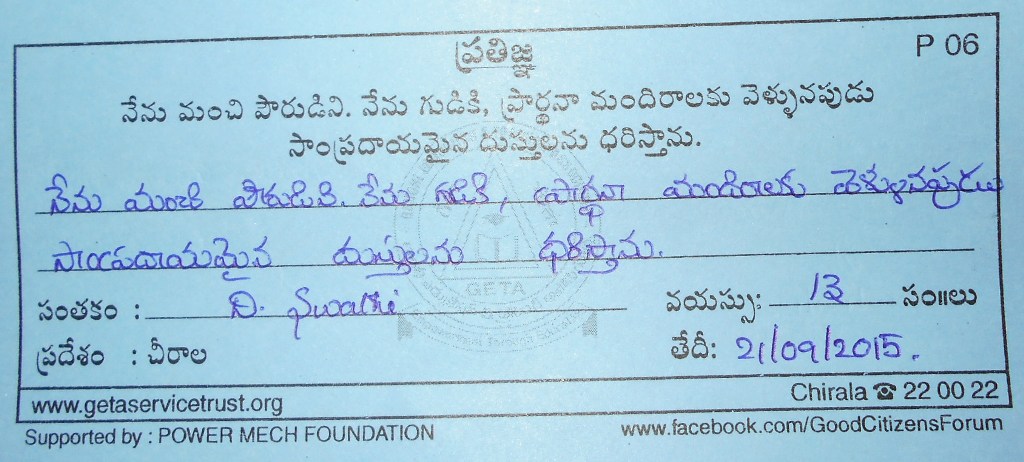 ప్రతిజ్ఞ
P 06
నేను మంచి పౌరుడిని. నేను గుడికి, ప్రార్థనా మందిరాలకు వెళ్ళునపుడు
సాంప్రదాయమైన దుస్తులను ధరిస్తాను.
నేను మంచి పౌరుడిని. నేను గుడికి, ప్రార్థనా మందిరాలకు వెళ్ళునపుడు
సాంప్రదాయమైన దుస్తులను ధరిస్తాను.
GETA
సంతకం : D. Swathi వయస్సు: 13 సం॥లు
ప్రదేశం : చీరాల తేదీ: 21/09/2015.
www.getaservicetrust.org Chirala ☎ 22 00 22
Supported by : POWER MECH FOUNDATION www.facebook.com/GoodCitizensForum